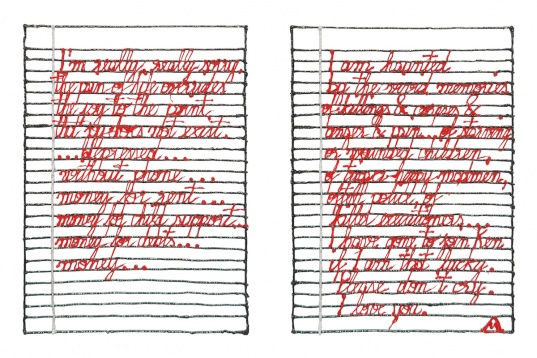 I'm really really sorry.
the pain of life overrides
the joy to the point
that joy does not exist.
...depressed...
without phone...
money for rent...
money for child support...
money for debts...
money...
I am haunted
by the vivid memories
of killings & corpses &
anger & pain... of starving
or wounded children,
of trigger-happy madmen,
often police, of
killer executioners...
I have gone to join Ken
if I am that lucky.
Please don't cry.
I love you.